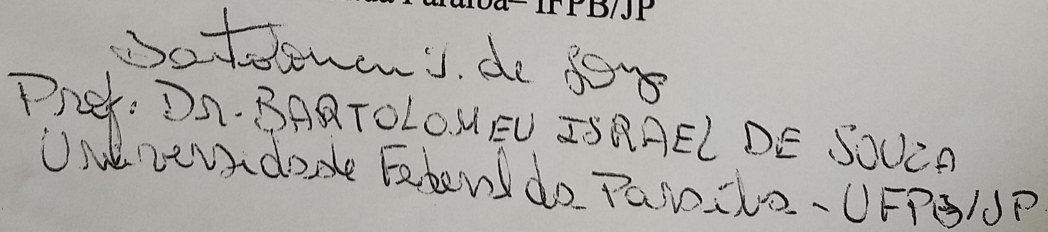 da Paraíba– IFPB/JP
Bartolomeu I. de Souza
Prof. Dr. BARTOLOMEU ISRAEL DE SOUZA
Universidade Federal da Paraíba - UFPB/JP